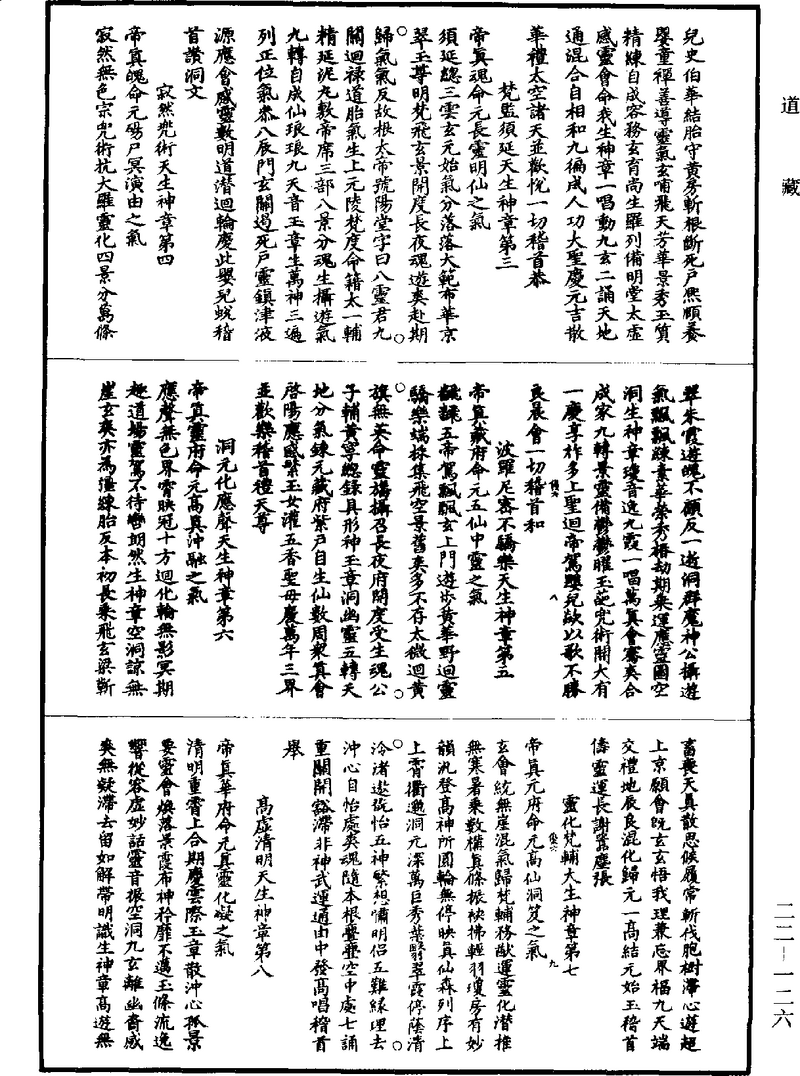 道藏
兒史伯華結胎守黃房斬根斷死戶熙頤養
嬰童禪善導靈氣玄哺飛天芳華景秀玉質
精練自成容務玄育尚生羅列備明堂太虛
感靈會命我生神章一唱動九玄二誦天地
通混合自相和九徧成人功大聖慶元吉散
華禮太空諸天並歡悅一切稽首恭
梵監須延天生神章第三
帝真魂命元長靈明仙之氣
須延總三雲玄元始氣分落落大範布華京
翠玉尊明梵飛玄景開度長夜魂遊爽赴期
歸氣氣反故根太帝號陽堂字曰八靈君九
關迴祿道胎氣生上元陵梵度命籍太一輔
精延泥丸敷帝席三部八景分魂生攝遊氣
九轉自成仙琅琅九天音玉章生萬神三遍
列正位氣恭八辰門玄關遏死戶靈鎮津液
源應會感靈數明道潛迴輪慶此嬰兒蛻稽
首讚洞文
寂然兜術天生神章第四
帝真魄命元陽尸冥演由之氣
寂然無色宗兜術抗大羅靈化四景分萬條
翠朱霞遊魄不顧反一遊洞群魔神公攝遊
氣飄飄練素華榮秀椿劫期乘運應靈圖空
洞生神章瓊音逸九霞一唱萬真會騫爽合
成家九轉景靈備鬱鬱曜玉葩兜術開大有
一慶享祚多上聖迴帝駕飄兒欲以歌不勝
良晨會一切稽首和
波羅尼密不驕樂天生神章第五
帝真藏府命元五仙中靈之氣
翩翩五帝駕飄飄玄上門遊步黃華野迴靈
驕樂端採集飛空景舊爽多不存太微迴黃
旗無英命靈旛攝召長夜府開度受生魂公
子輔黃寧總錄具形神玉章洞幽靈五轉天
地分氣鍊元藏府紫戶自生仙數周衆真會
啓陽應感繁玉女灌五香聖母慶萬年三界
並歡樂稽首禮天尊
洞元化應聲天生神章第六
帝真靈府命元高真沖融之氣
應聲無色界霄映冠十方迴化輪無影冥期
趣道場靈駕不待轡朗然生神章空洞諒無
崖玄爽亦爲彊練胎反本初長乘飛玄梁斬
畜喪天真散思候履常斬伐胞樹滯心遊超
上京願會既玄玄悟我理兼忘界福九天端
交禮地辰良混化歸元一高結元始玉稽首
儔靈運長謝當塵張
靈化梵輔大生神章第七
帝真元府命元高仙洞笈之氣
玄會統無崖混氣歸梵輔務猷運靈化潛推
無寒暑乘數構真條振袂拂輕羽瓊房有妙
韻汎登高神所圓輪無停映真仙森列序上
上霄衢邈洞元深萬巨秀葉翳翠霞停蔭清
泠渚遨翫怡五神繁想嘯明侶五難緣理去
沖心自怡處爽魂隨本根亹亹空中處七誦
重關開豁滯非神武運通由中發高唱稽首
舉
高虛清明天生神章第八
帝真華府命元真靈化凝之氣
清明重霄上合期慶雲際玉章散沖心孤景
要靈會煥落景霞布神衿靡不邁玉條流逸
響從容虛妙話靈音振空洞九玄離幽裔感
爽無凝滯去留如解帶明識生神章高遊無
二二—一二六